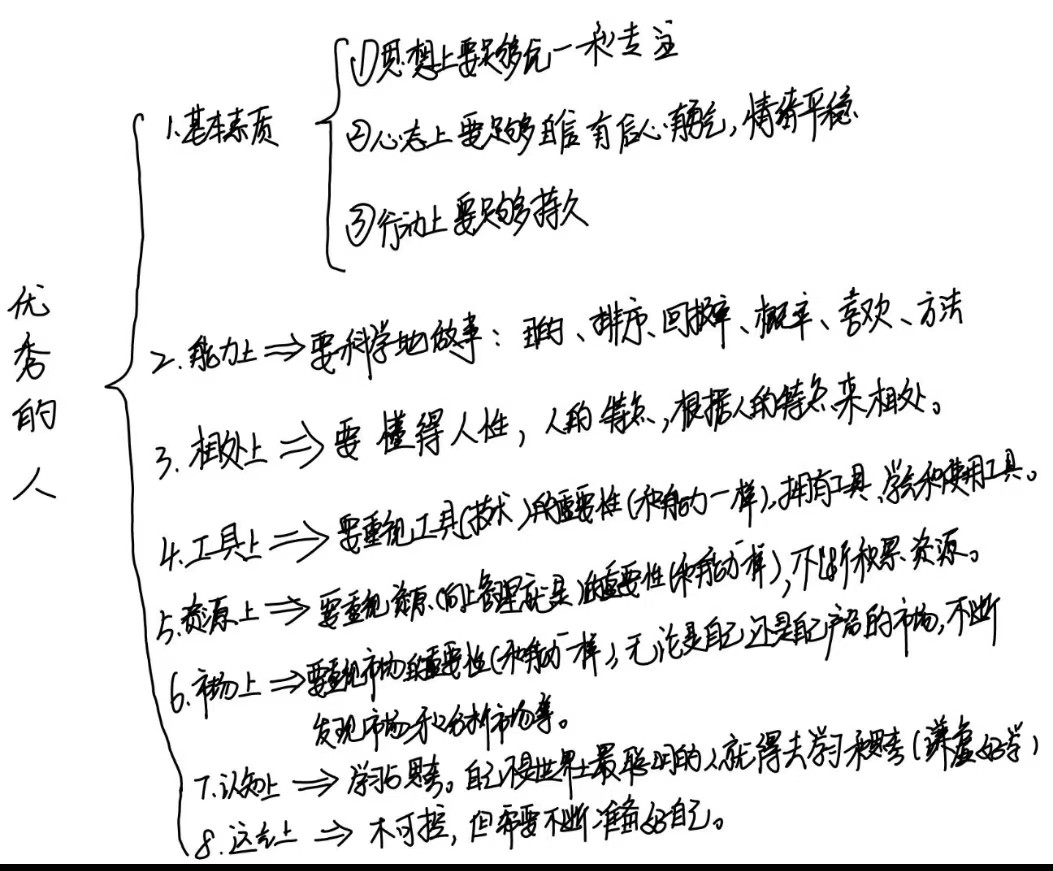 优秀的人
1.基本素质
①思想上要足够统一和专注
②心态上要足够自信有信心有勇气,情绪平稳
③行动上要足够持久
2.能力上⇒要科学地做事:目的、排序、回报率、概率、喜欢、方法
3.相处上⇒要懂得人性,人的特点,根据人的特点来相处。
4.工具上⇒要重视工具(技术)的重要性(和能力一样),拥有工具、学会和使用工具。
5.资源上⇒要重视资源(向上管理就是)的重要性(和能力一样),不断积累资源。
6.市场上⇒要重视市场的重要性(和能力一样),无论是自己还是自己产品的市场,不断
发现市场和分析市场等。
7.认知上⇒学习与思考。自己不是世界上最聪明的人就得去学习和思考(谦虚好学)
8.运气上⇒不可控,但需要不断准备好自己。